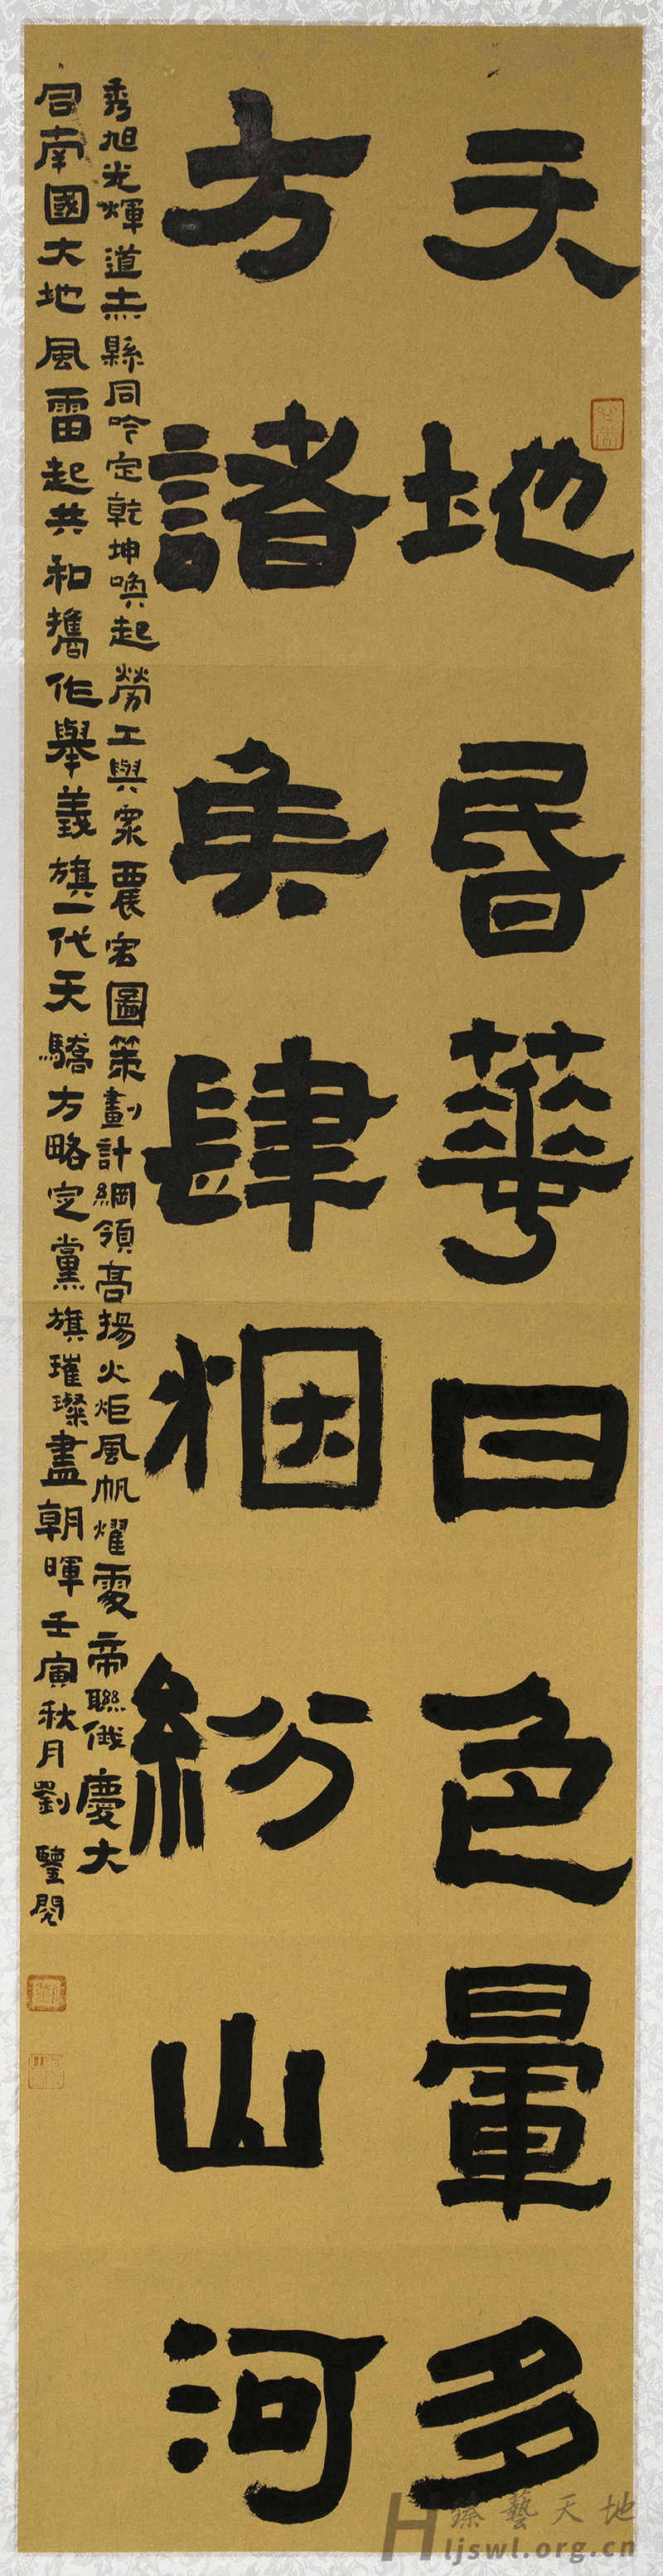 天地昏華日色暈多
方諸矦肆烟紛山河
秀旭光輝道赤縣同吟定乾坤喚起勞工與眾農宏圖策劃計綱領高揚火炬風帆耀帝聯俄慶大
同南國大地風雷起共和攜作舉義旗一代天驕方略定黨旗璀璨盡朝暉壬寅秋月劉鑒閱
臻藝天地
Hljswl.org.cn